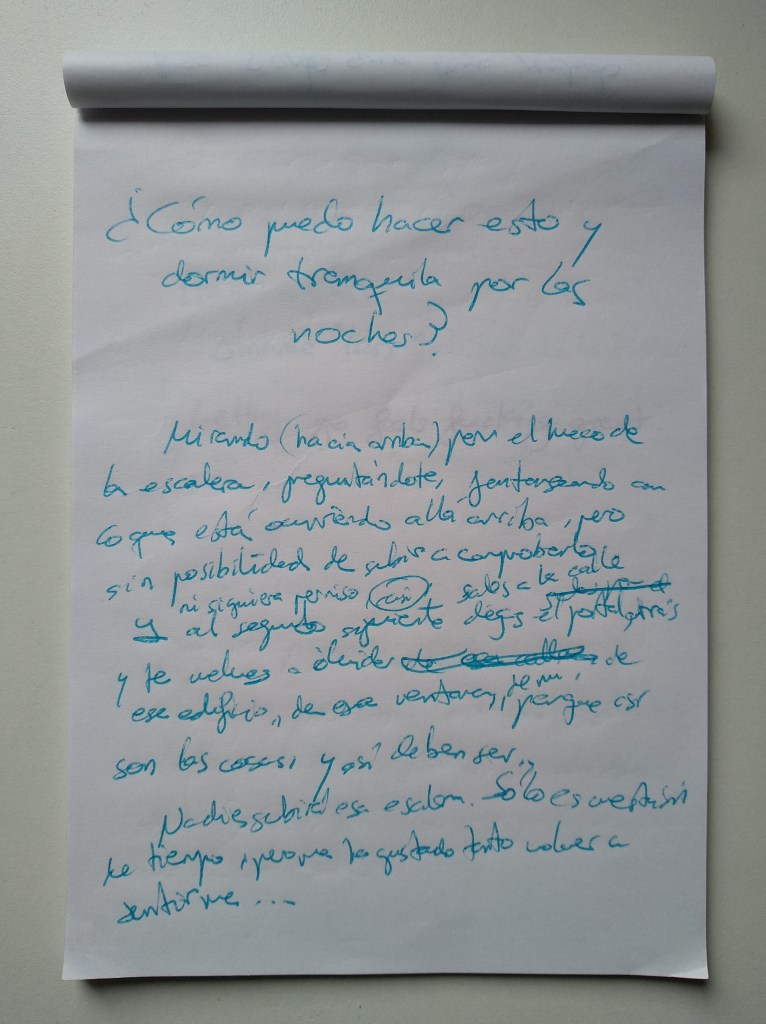 ¿Cómo puedo hacer esto y
dormir tranquila por las
noches?
Mirando (hacia arriba) por el hueco de
la escalera, preguntándote, fantaseando con
lo que está ocurriendo allá arriba, pero
sin posibilidad de subir a comprobarlo,
ni siquiera permiso casi, sales a la calle
y al segundo siguiente dejas el portal atrás
y te vuelves a olvidar de
ese edificio, de esa ventana, de mí, porque así
son las cosas, y así deben ser.
Nadie subirá esa escalera. Sólo es cuestión
de tiempo, pero me ha gustado tanto volver a
sentirme...